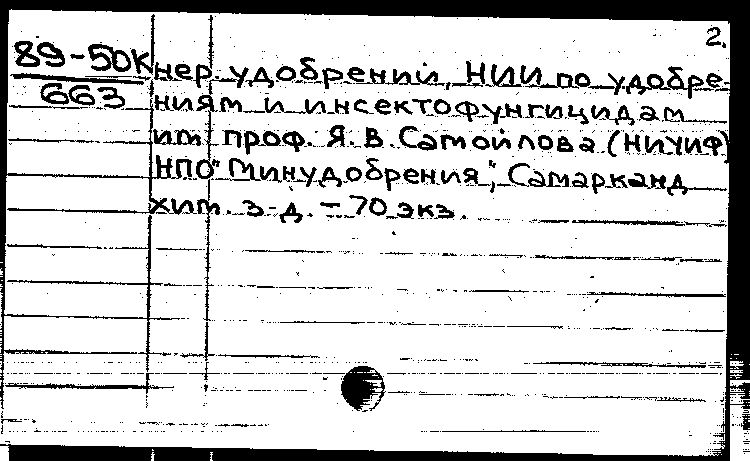 2.
89-50К
663
нер. удобрений, НИИ по удобре-
ниям и инсектофунгицидам
им проф. Я. В. Самойлова (НИУИФ)
НПО "Минудобрения", Самарканд
хим. з-д. - 70 экз.